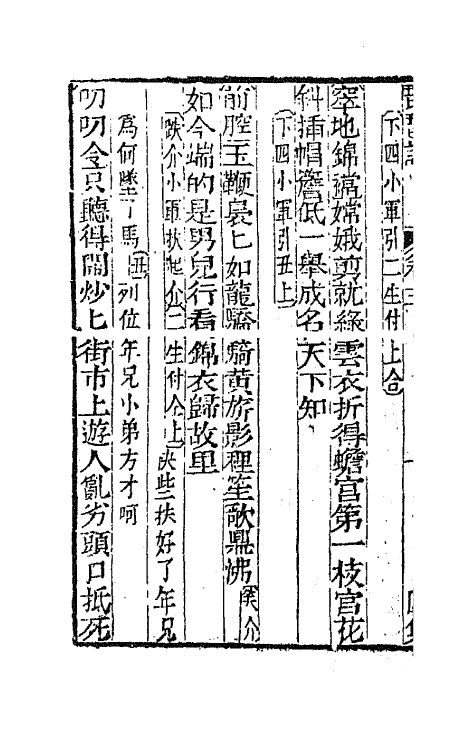 下四小軍引二生付上合
窣地錦襠嫦娥剪就綠雲衣折得蟾宮第一枝宮花
斜插帽簷低一舉成名天下知
下四小軍引丑上
前腔玉鞭裊匕如龍驕騎黃旂影裡笙歌鼎沸
如今端的是男兒行看錦衣歸故里
跌介小軍扶起介二生付仝上快些扶好了年兄
爲何墜了馬丑列位年兄小弟方才呵
叨叨令只聽得鬧炒匕街市上遊人亂劣頭口抵死